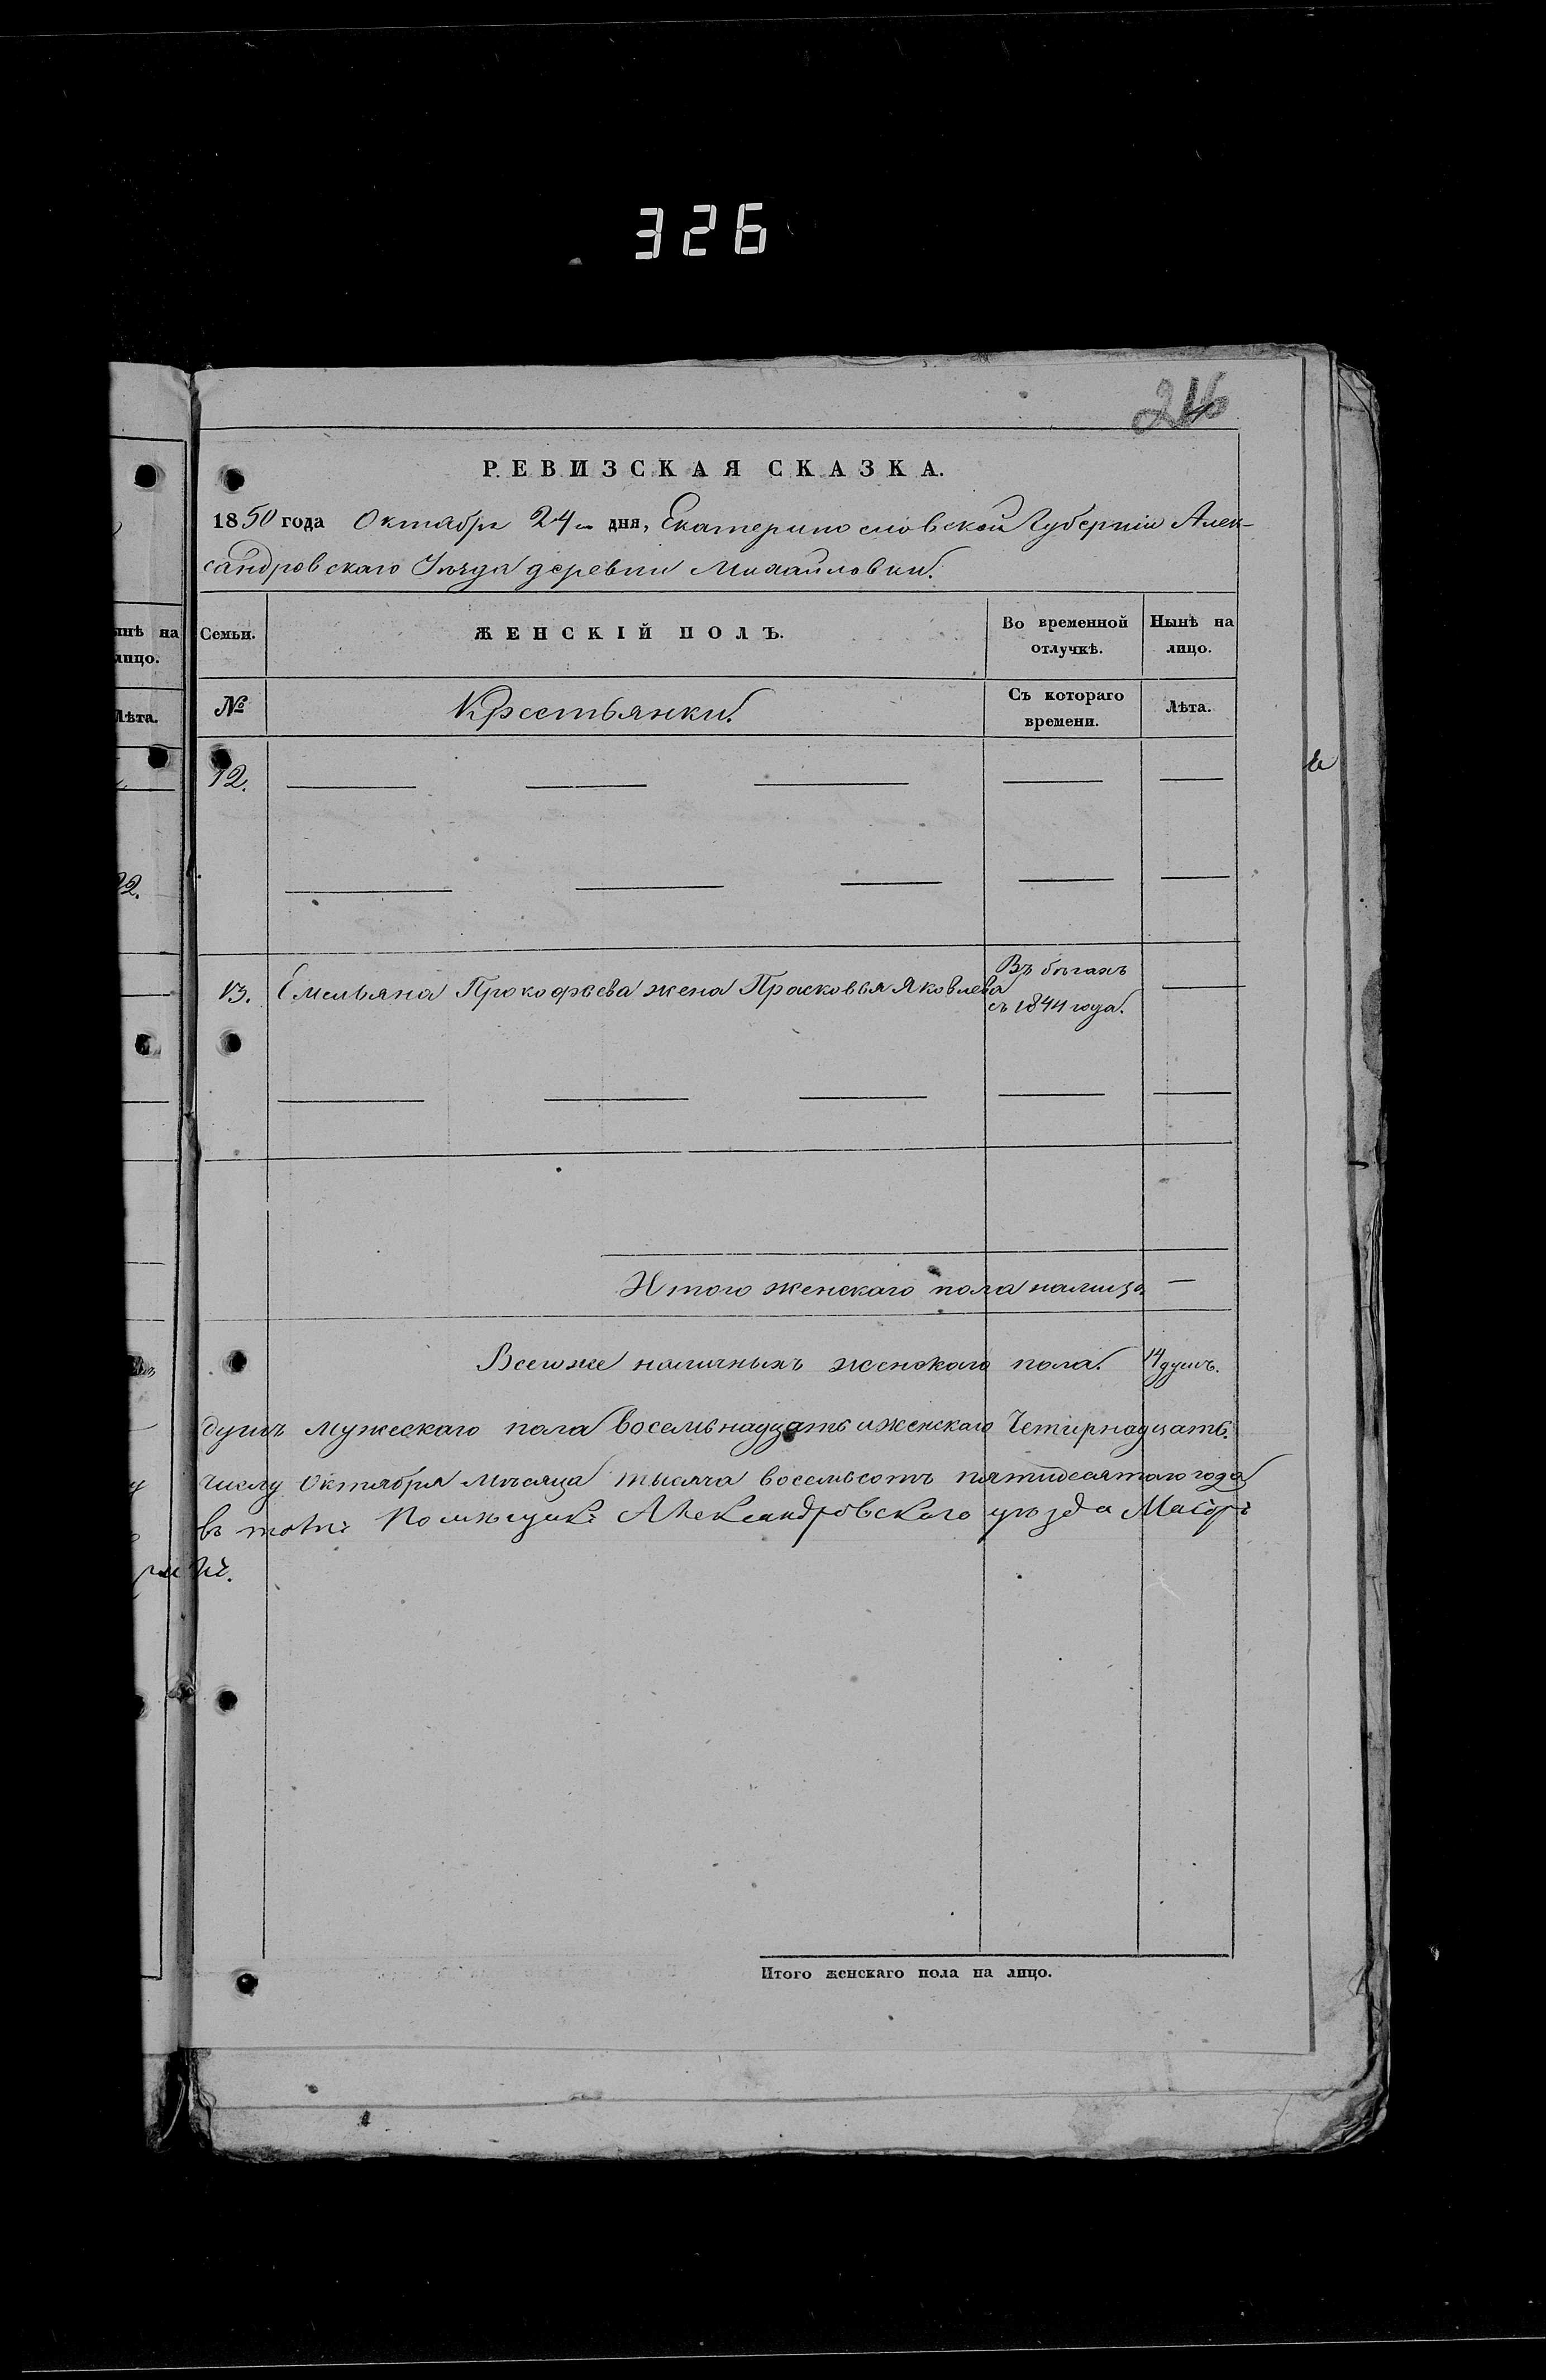 326
216
РЕВИЗСКАЯ СКАЗКА.
1850 года Октября 24 дня, Екатеринословской Губерніи Алек-
сандровскаго Уѣзда деревни Михайловки.
ынѣ на
лицо.
Лѣта.
22.
Семьи.
ЖЕНСКІЙ ПОЛЪ.
Во временной
отлучкѣ.
Нынѣ на
лицо.
№
Крестьянки.
Съ котораго
времени.
Лѣта.
12.
13. Емельяна Прокофьева жена Прасковья Яковлева
Въ бѣгахъ
съ 1844 года.
Итого женскаго пола налицо. —
Всехже наличныхъ женскаго пола. 14 душъ.
душъ мужескаго пола восемьнадцать и женскаго Четирнадцать.
числу Октября мѣсяца тысяча восемьсотъ пятидесятого года
въ томъ Помѣщикъ Александровскаго уѣзда Маіоръ
Итого женскаго пола на лицо.